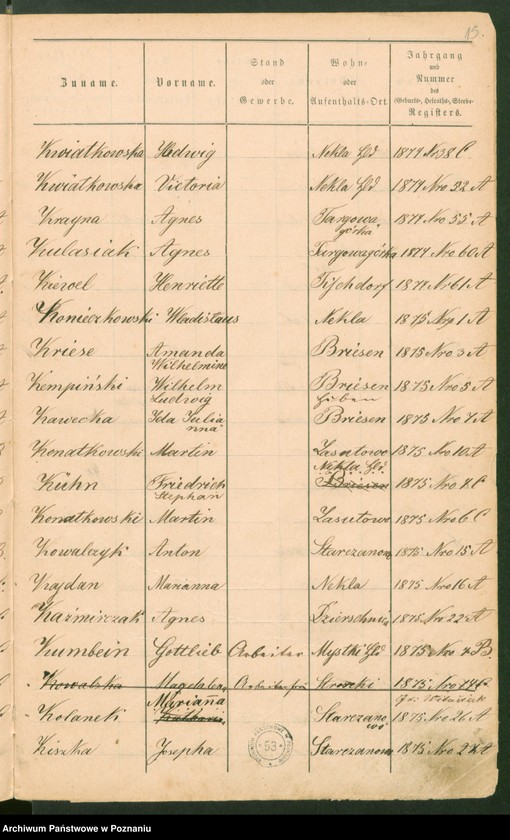 15.
Zuname. Vorname. Stand oder Gewerbe. Wohn- oder Aufenthalts-Ort. Jahrgang und Nummer des (Geburts-, Heiraths-, Sterbe- Registers.
Kwiatkowska Hedwig Nekla Hld 1874 Nro 38 C
Kwiatkowska Victoria Nekla Hld 1874 Nro 32 A
Krayna Agnes Targowa górka 1874 Nro 55 A
Kulasiak Agnes Targowagórka 1874 Nro 60 A
Henriette 1874 Nro 61 A
Konieczkowski Wladislaus Nekla 1875 Nro 1 A
Kriese Amanda Wilhelmine Briesen 1875 Nro 3 A
Kempiński Wilhelm Ludwig Briesen 1875 Nro 5 A
Kawecka Ida Julianna Briesen 1875 Nro 7 A
Konatkowski Martin Lasutowo 1875 Nro 10 A
Kühn Friedrich Stephan Nekla Hld. Briesen 1875 Nro 4 C
Konatkowski Martin Lasutowo 1875 Nro 6 C
Kowalczyk Anton Starczanowo 1875 Nro 15 A
Kajdan Marianna Nekla 1875 Nro 16 A
Kaźmirczak Agnes Dzierschnica 1875 Nro 22 A
Kumbein Gottlieb Arbeiter Mystki Hld 1875 Nro 4 B
Kowalska Magdalena Arbeiterfrau Stroszki 1875
Kolaneki Marianna Starczanowo 1875 Nro 26 A
Kiszka Josepha Starczanowo 1875 Nro 27 A
53
Archiwum Państwowe w Poznaniu